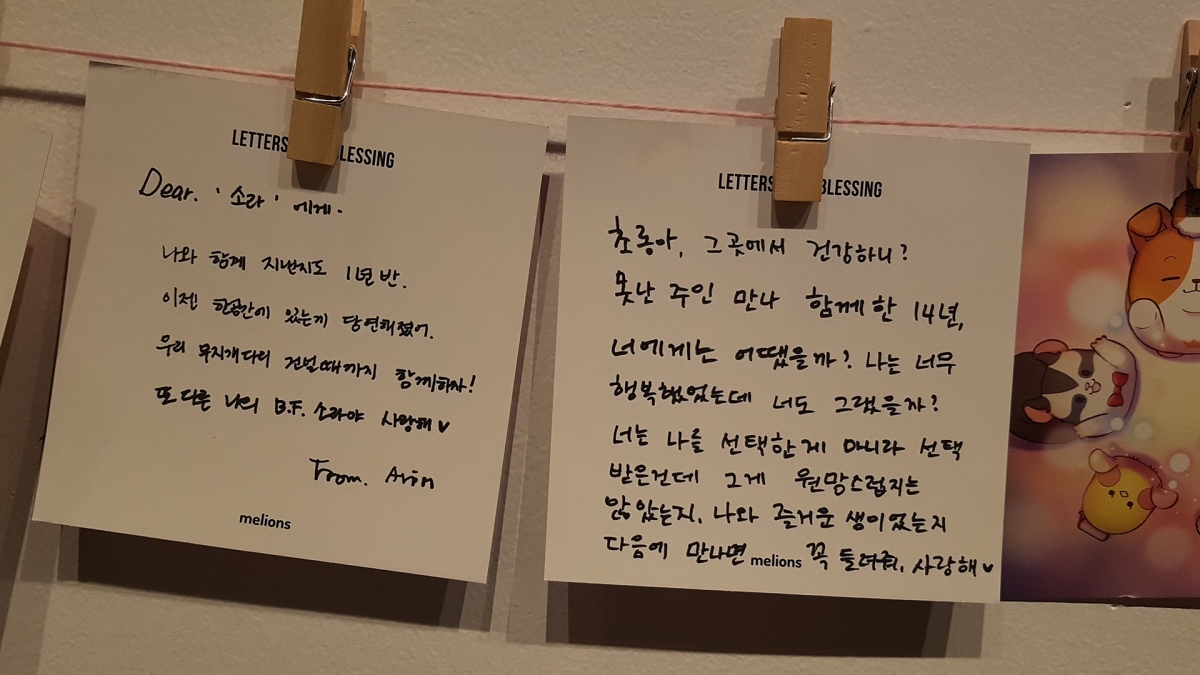 LETTERS LESSING
Dear. '소라' 에게.
나와 함께 지낸지도 1년 반.
이젠 한공간에 있는게 당연해졌어.
우리 무지개다리 건널때까지 함께하자!
또 다른 나의 B.F. 소라야 사랑해♥
From. Arin
melions
LETTERS BLESSING
초롱아, 그곳에서 건강하니?
못난 주인 만나 함께한 14년,
너에게는 어땠을까? 나는 너무
행복했었는데 너도 그랬을까?
너는 나를 선택한게 아니라 선택
받은건데 그게 원망스럽지는
않았는지, 나와 즐거운 생이었는지
다음에 만나면 melions 꼭 들려줘, 사랑해♥